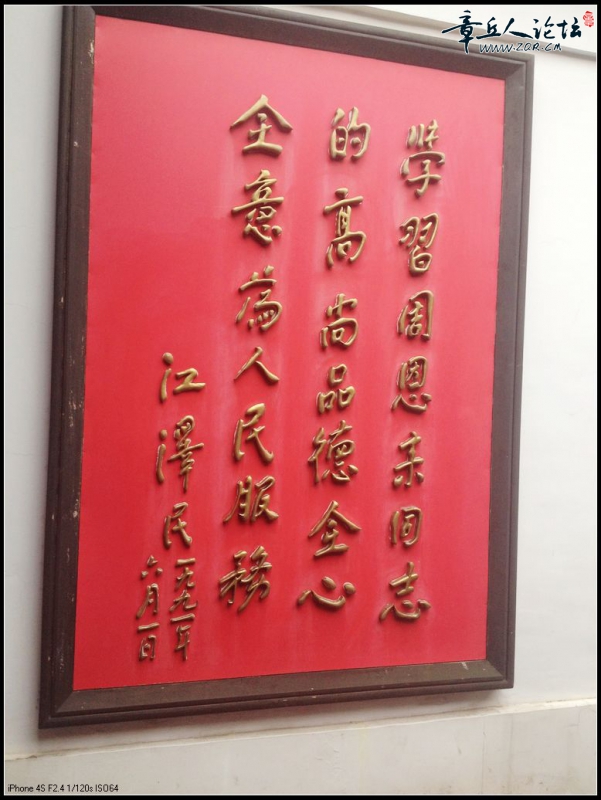 章丘人论坛
www.ZQR.CM
學習周恩来同志
的高尚品德全心
全意為人民服務
江澤民
一九九一年
六月一日
iPhone 4S F2.4 1/120s ISO64